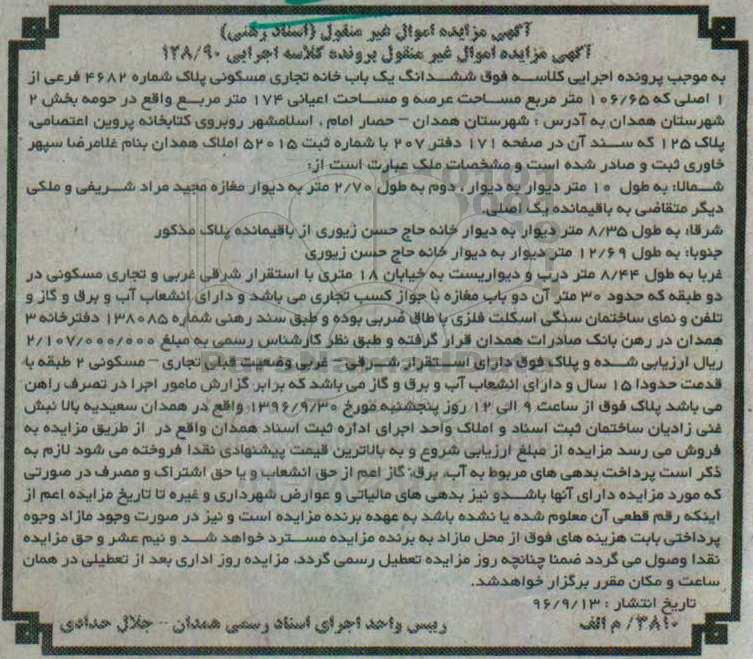 آگهی مزایده اموال غیر منقول (اسناد رهنی)
آگهی مزایده اموال غیر منقول پرونده کلاسه اجرایی ۱۲۸/۹۰
به موجب پرونده اجرایی کلاسه فوق ششدانگ یک باب خانه تجاری مسکونی پلاک شماره ۴۶۸۲ فرعی از
۱ اصلی که ۱۰۶/۶۵ متر مربع مساحت عرصه و مساحت اعیانی ۱۷۴ متر مربع واقع در حومه بخش ۲
شهرستان همدان به آدرس : شهرستان همدان – حصار امام ، اسلامشهر روبروی کتابخانه پروین اعتصامی،
پلاک ۱۲۵ که سند آن در صفحه ۱۷۱ دفتر ۲۰۷ با شماره ثبت ۵۲۰۱۵ املاک همدان بنام غلامرضا سپهر
خاوری ثبت و صادر شده است و مشخصات ملک عبارت است از:
شمالا: به طول ۱۰ متر دیوار به دیوار ، دوم به طول ۲/۷۰ متر به دیوار مغازه مجید مراد شریفی و ملکی
دیگر متقاضی به باقیمانده یک اصلی.
شرقا: به طول ۸/۳۵ متر دیوار به دیوار خانه حاج حسن زیوری از باقیمانده پلاک مذکور
جنوبا: به طول ۱۲/۶۹ متر دیوار به دیوار خانه حاج حسن زیوری
غربا به طول ۸/۴۴ متر درب و دیواریست به خیابان ۱۸ متری با استقرار شرقی غربی و تجاری مسکونی در
دو طبقه که حدود ۳۰ متر آن دو باب مغازه با جواز کسب تجاری می باشد و دارای انشعاب آب و برق و گاز و
تلفن و نمای ساختمان سنگی اسکلت فلزی با طاق ضربی بوده و طبق سند رهنی شماره ۱۳۸۰۸۵ دفترخانه ۳
همدان در رهن بانک صادرات همدان قرار گرفته و طبق نظر کارشناس رسمی به مبلغ ۲/۱۰۷/۰۰۰/۰۰۰
ریال ارزیابی شده و پلاک فوق دارای استقرار شرقی – غربی وضعیت فیلی تجاری – مسکونی ۲ طبقه با
قدمت حدودا ۱۵ سال و دارای انشعاب آب و برق و گاز می باشد که برابر گزارش مامور اجرا در تصرف راهن
می باشد پلاک فوق از ساعت ۹ الی ۱۲ روز پنجشنبه مورخ ۱۳۹۶/۹/۳۰ واقع در همدان سعیدیه بالا نبش
غنی زادیان ساختمان ثبت اسناد و املاک واحد اجرای اداره ثبت اسناد همدان واقع در از طریق مزایده به
فروش می رسد مزایده از مبلغ ارزیابی شروع و به بالاترین قیمت پیشنهادی نقدا فروخته می شود لازم به
ذکر است پرداخت بدهی های مربوط به آب، برق، گاز اعم از حق انشعاب و یا حق اشتراک و مصرف در صورتی
که مورد مزایده دارای آنها باشدو نیز بدهی های مالیاتی و عوارض شهرداری و غیره تا تاریخ مزایده اعم از
اینکه رقم قطعی آن معلوم شده یا نشده باشد به عهده برنده مزایده است و نیز در صورت وجود مازاد وجوه
پرداختی بابت هزینه های فوق از محل مازاد به برنده مزایده مسترد خواهد شد و نیم عشر و حق مزایده
نقدا وصول می گردد ضمنا چنانچه روز مزایده تعطیل رسمی گردد، مزایده روز اداری بعد از تعطیلی در همان
ساعت و مکان مقرر برگزار خواهدشد.
تاریخ انتشار : ۹۶/۹/۱۳
۳۸۱۰/ م الف
رییس واحد اجرای اسناد رسمی همدان – جلال حدادی